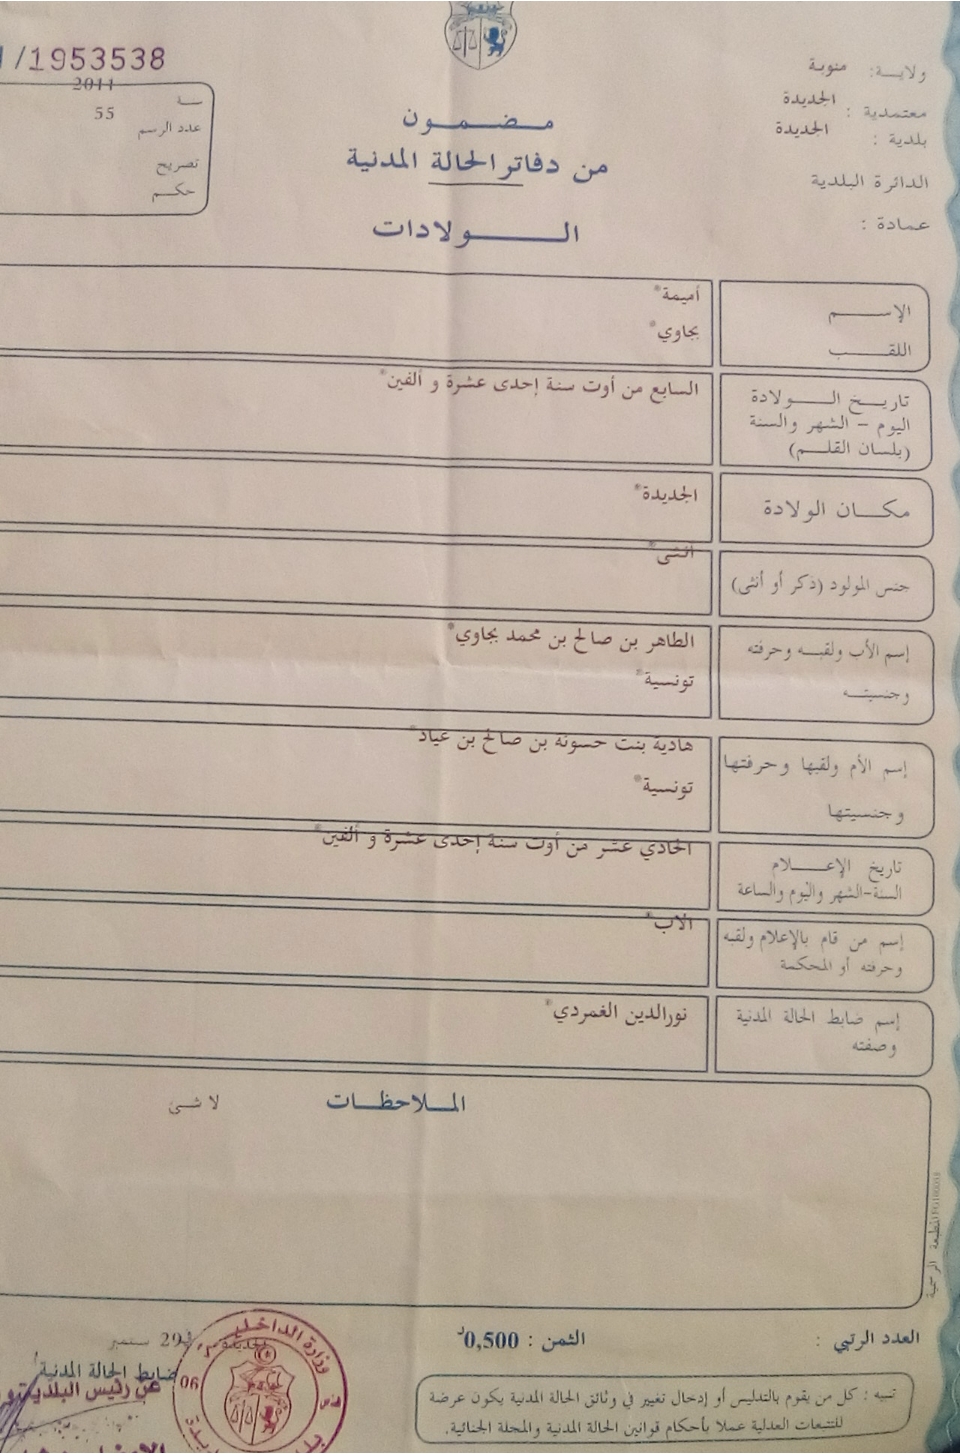 1953538/
ولايـــة: منوبة
معتمدية : الجديدة
بلدية : الجديدة
الدائرة البلدية
عمادة :
سنة 2011
عدد الرسم 55
تصريح
حكم
مضمون
من دفاتر الحالة المدنية
الولادات
الإسم أميمة*
اللقب بجاوي*
تاريخ الولادة السابع من أوت سنة إحدى عشرة و ألفين*
اليوم - الشهر والسنة
(بلسان القلم)
مكان الولادة الجديدة*
جنس المولود (ذكر أو أنثى) انثى*
إسم الأب ولقبه وحرفته الطاهر بن صالح بن محمد بجاوي*
وجنسيته تونسية*
إسم الأم ولقبها وحرفتها هادية بنت حسونة بن صالح بن عياد*
وجنسيتها تونسية*
تاريخ الإعلام الحادي عشر من أوت سنة إحدى عشرة و ألفين*
السنة-الشهر واليوم والساعة
إسم من قام بالإعلام ولقبه الاب*
وحرفته أو المحكمة
إسم ضابط الحالة المدنية نورالدين الغمردي*
وصفته
الملاحظات لا شئ
المطبعة الرسمية
العدد الرتبي : الثمن : 0,500د
29 سبتمبر
ضابط الحالة المدنية
عن رئيس البلدية و
وزارة الداخلية
06
تنبيه : كل من يقوم بالتدليس أو إدخال تغيير في وثائق الحالة المدنية يكون عرضة
للتتبعات العدلية عملا بأحكام قوانين الحالة المدنية والمجلة الجنائية.